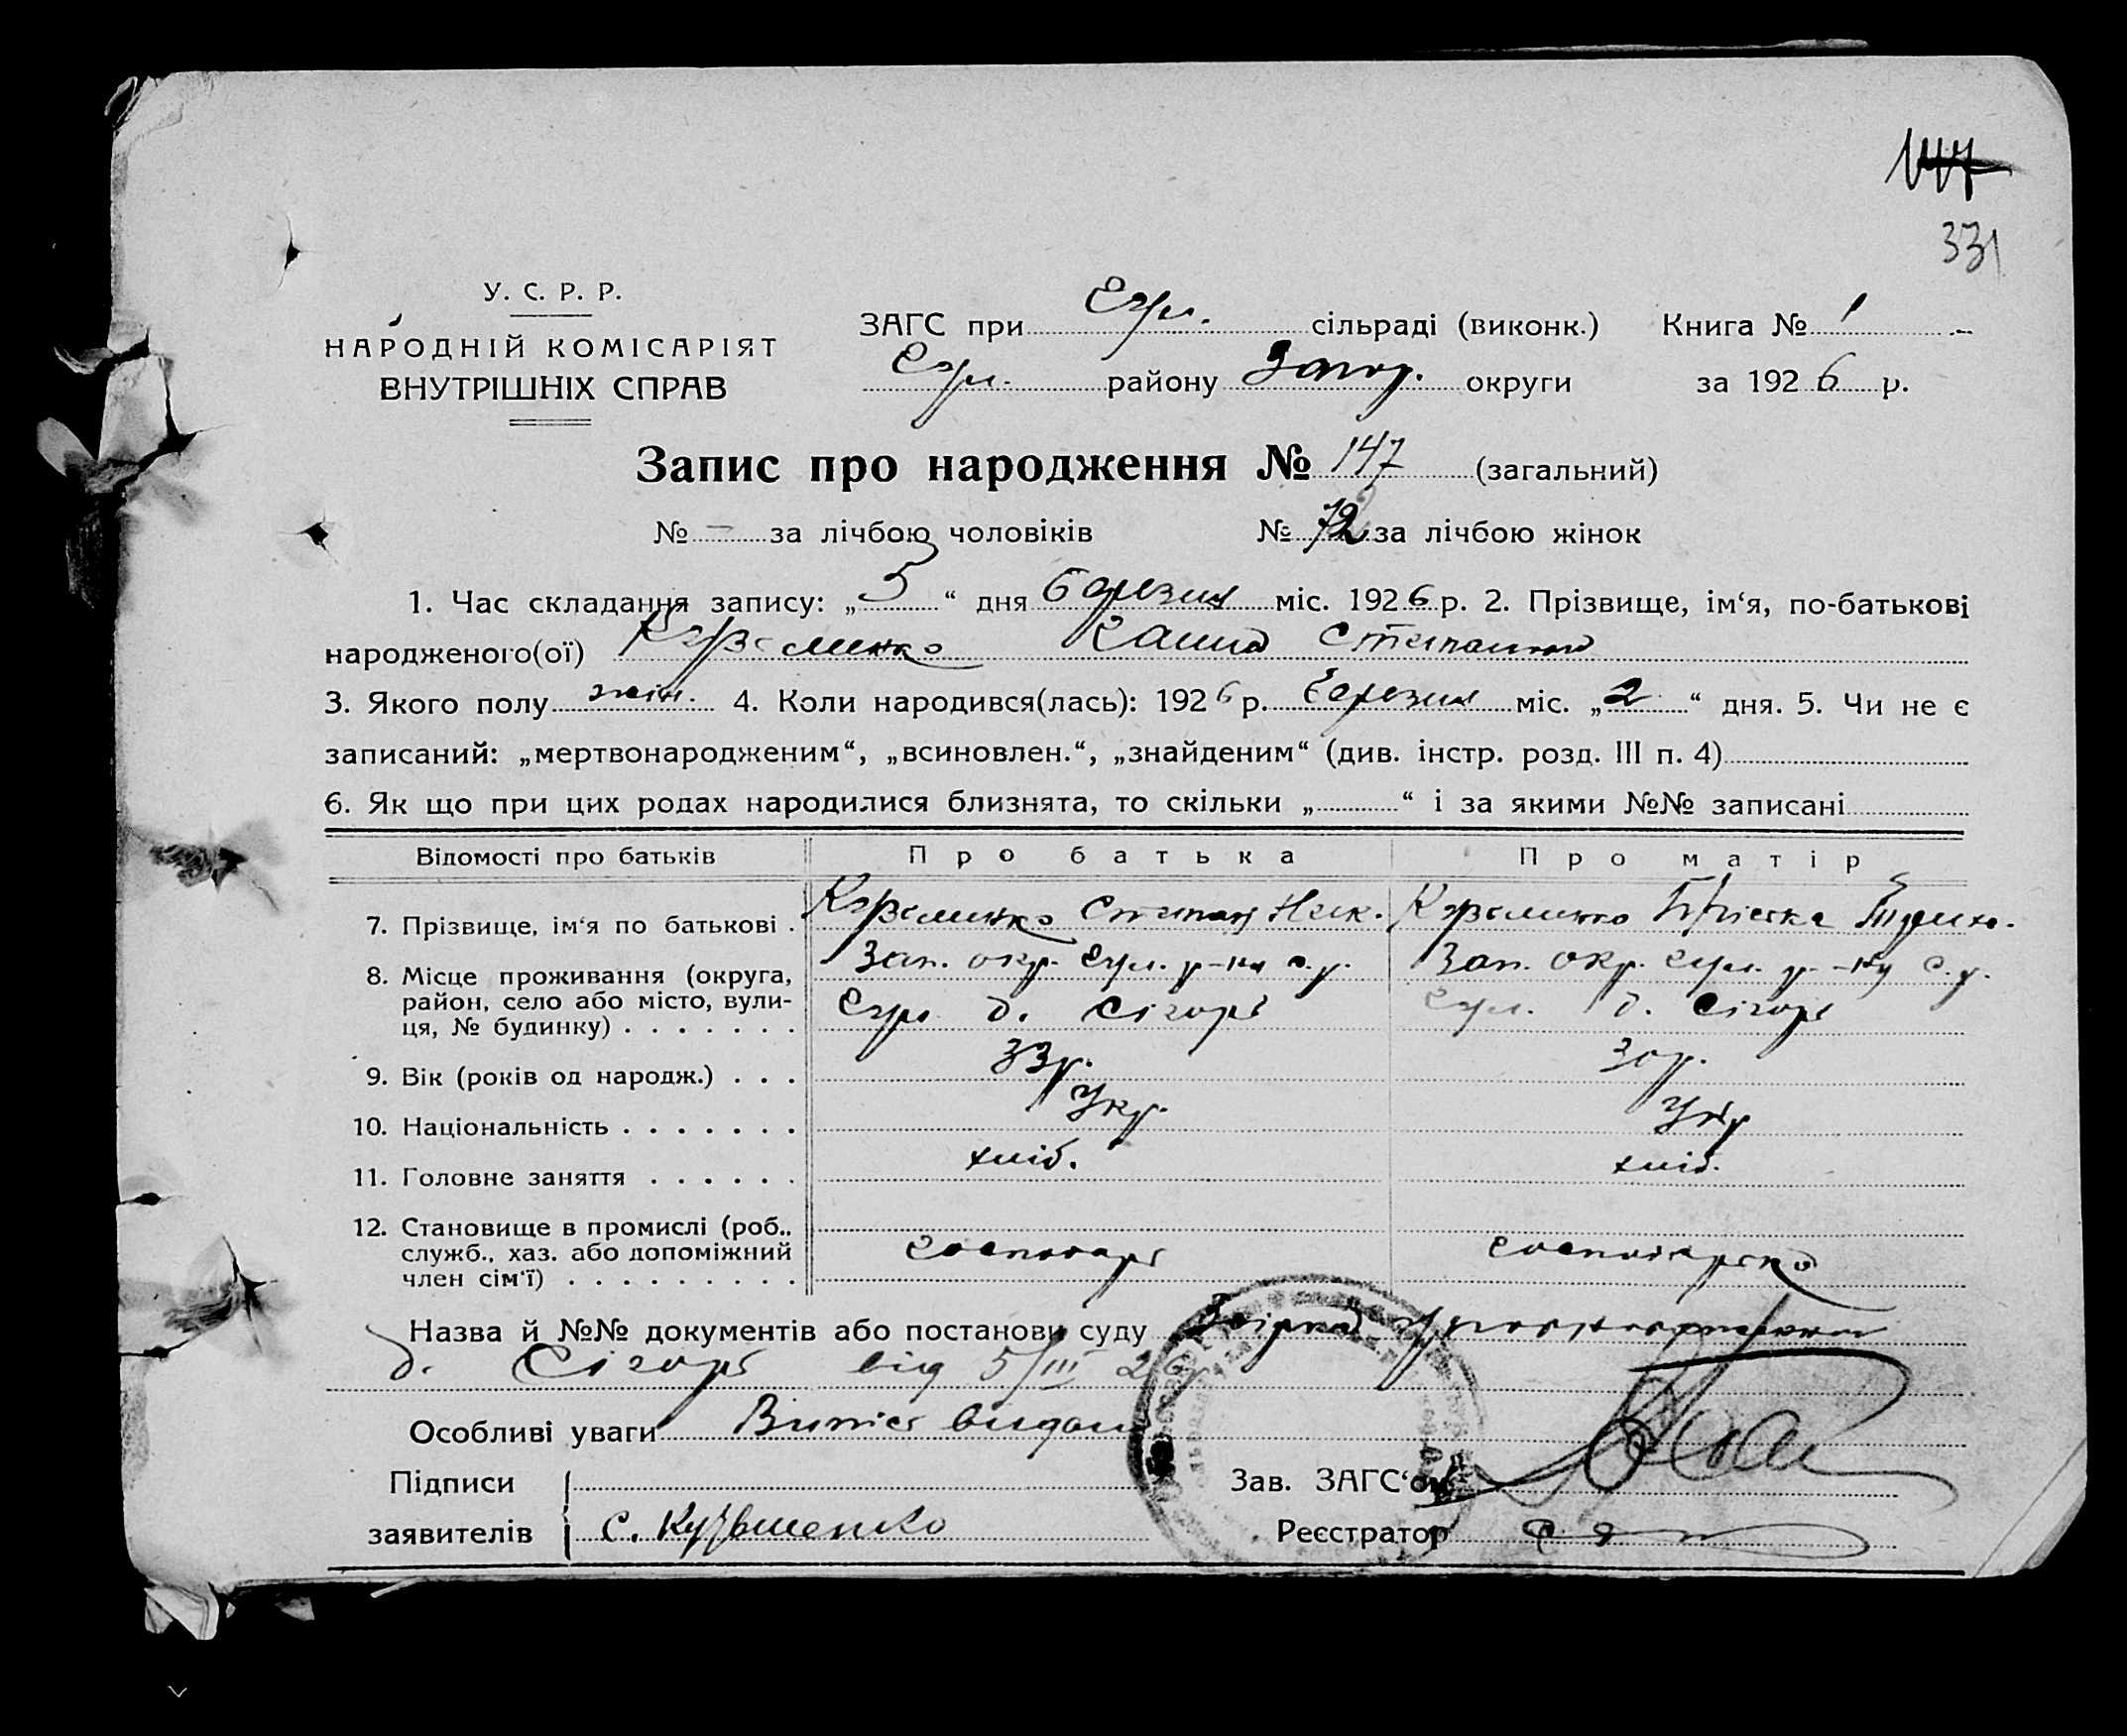 147
331
У. С. Р. Р.
НАРОДНІЙ КОМІСАРІЯТ
ВНУТРІШНІХ СПРАВ
ЗАГС при сільраді (виконк.) Книга № 1
району Запор. округи за 1926 р.
Запис про народження № 147 (загальний)
№ — за лічбою чоловіків № 72 за лічбою жінок
1. Час складання запису: „5“ дня березня міс. 1926 р. 2. Прізвище, ім‘я, по-батькові
народженого(ої) Кузьменко Ганна Степанівна
3. Якого полу жін. 4. Коли народився(лась): 1926 р. березня міс. „2“ дня. 5. Чи не є
записаний: „мертвонародженим“, „всиновлен.“, „знайденим“ (див. інстр. розд. III п. 4)
6. Як що при цих родах народилися близнята, то скільки „ “ і за якими №№ записані
Відомості про батьків Про батька Про матір
7. Прізвище, ім‘я по батькові . Кузьменко Степан Ник. Кузьменко
8. Місце проживання (округа, Зап. окр. р-ну с.р. Зап. окр. р-ну с.р.
район, село або місто, вули-
ця, № будинку) . . . . . . . д. Сігорь д. Сігорь
9. Вік (років од народж.) . . . 33 р. 30 р.
10. Національність . . . . . . . Укр. Укр
11. Головне заняття . . . . . . хліб. хліб.
12. Становище в промислі (роб.,
служб., хаз. або допоміжний господарь господарька
член сім‘ї) . . . . . . . . .
Назва й №№ документів або постанови суду
д. Сігорь від 5/III 26 р
Особливі уваги Витяг видан
Підписи Зав. ЗАГС‘ом
заявителів С. Кузьменко Реєстратор